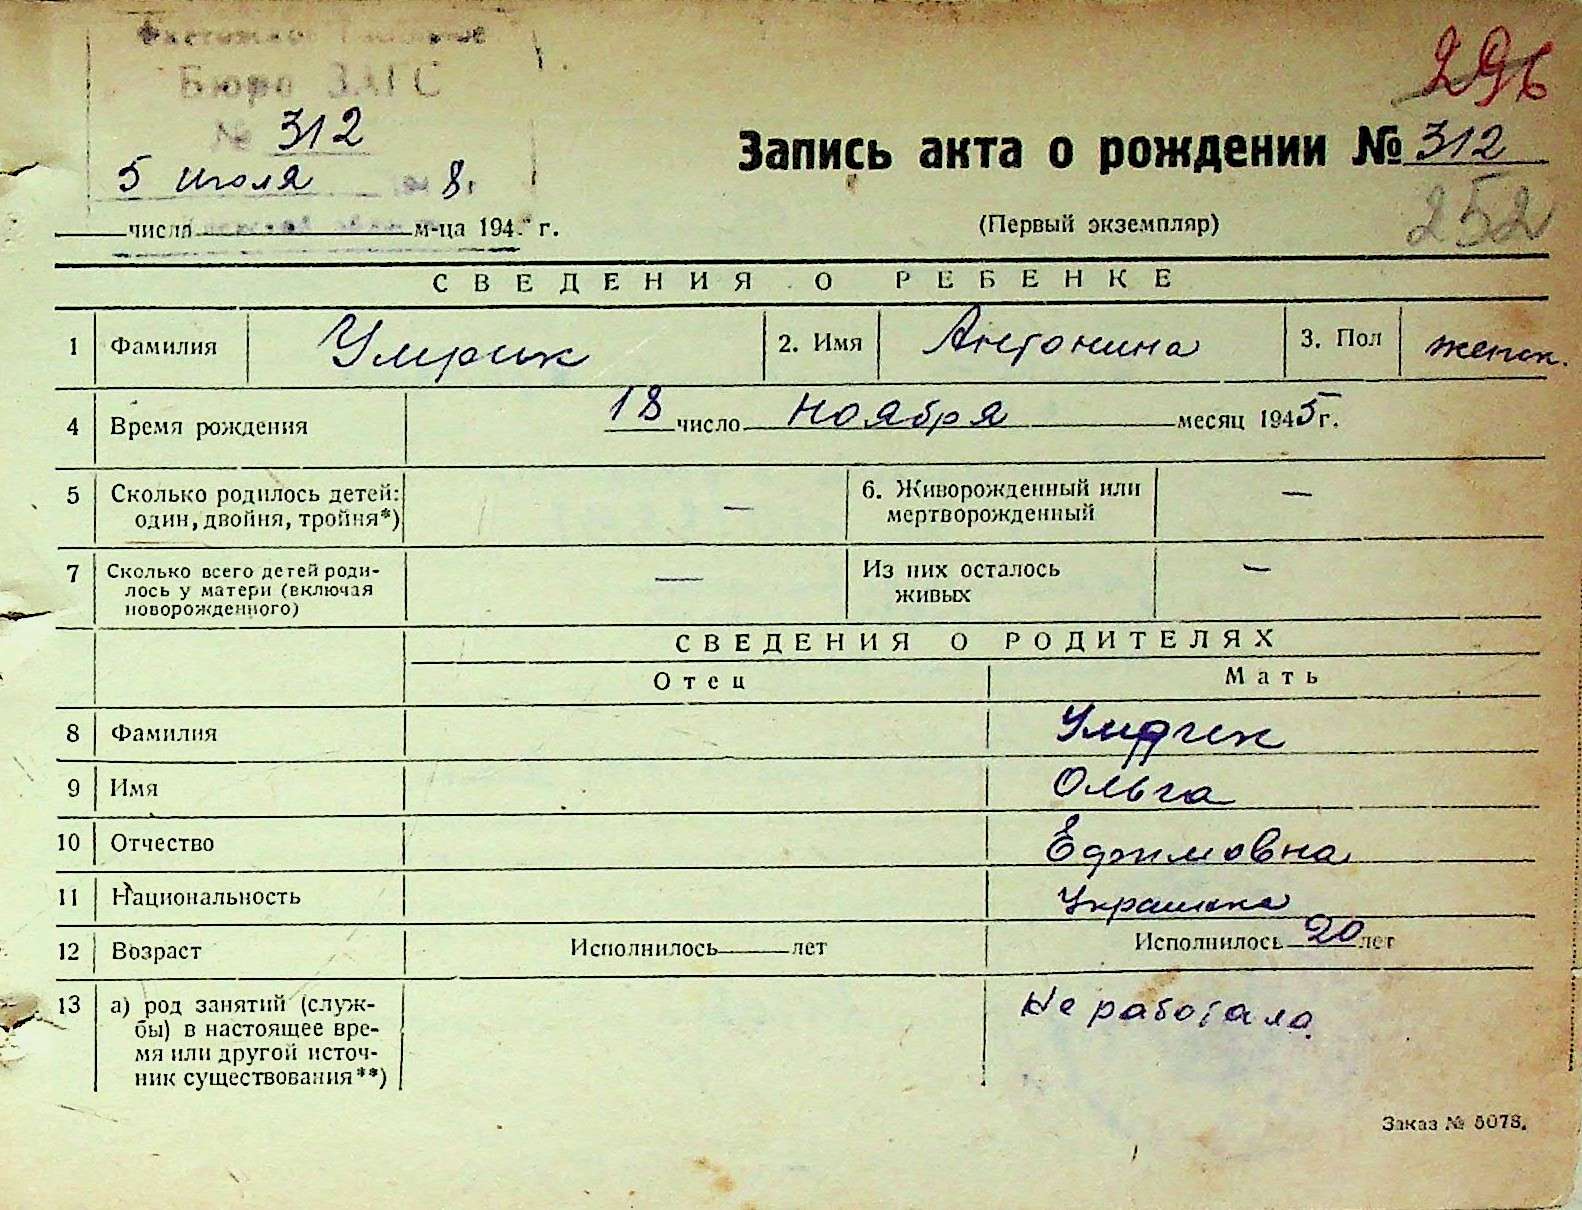 Бюро ЗАГС
№ 312
5 июля 8 г.
числа м-ца 194 г.
296
Запись акта о рождении № 312
(Первый экземпляр)
252
СВЕДЕНИЯ О РЕБЕНКЕ
1 Фамилия Умрик 2. Имя Антонина 3. Пол женск.
4 Время рождения 18 число ноября месяц 1945 г.
5 Сколько родилось детей: — 6. Живорожденный или —
один, двойня, тройня*) мертворожденный
7 Сколько всего детей роди- — Из них осталось —
лось у матери (включая живых
новорожденного)
СВЕДЕНИЯ О РОДИТЕЛЯХ
Отец Мать
8 Фамилия Умрик
9 Имя Ольга
10 Отчество Ефимовна
11 Национальность Украинка
12 Возраст Исполнилось лет Исполнилось 20 лет
13 а) род занятий (служ- Не работала.
бы) в настоящее вре-
мя или другой источ-
ник существования**)
Заказ № 5078.